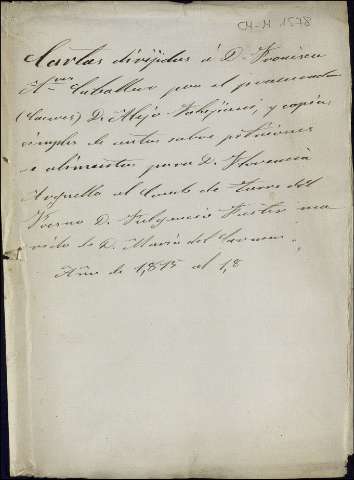 CM-M 1578
Cartas dirijidas á Dn Francisco
Ant. Caballero por el procurador
(Cáceres) D. Alejo y copias
simples de autos sobre peticiones
a alimentos para D. Florencia
al Conde de Torre del
Fresno D. Fulgencio ma-
rido de D. María del Carmen.
Año de 1,815 al 1,8